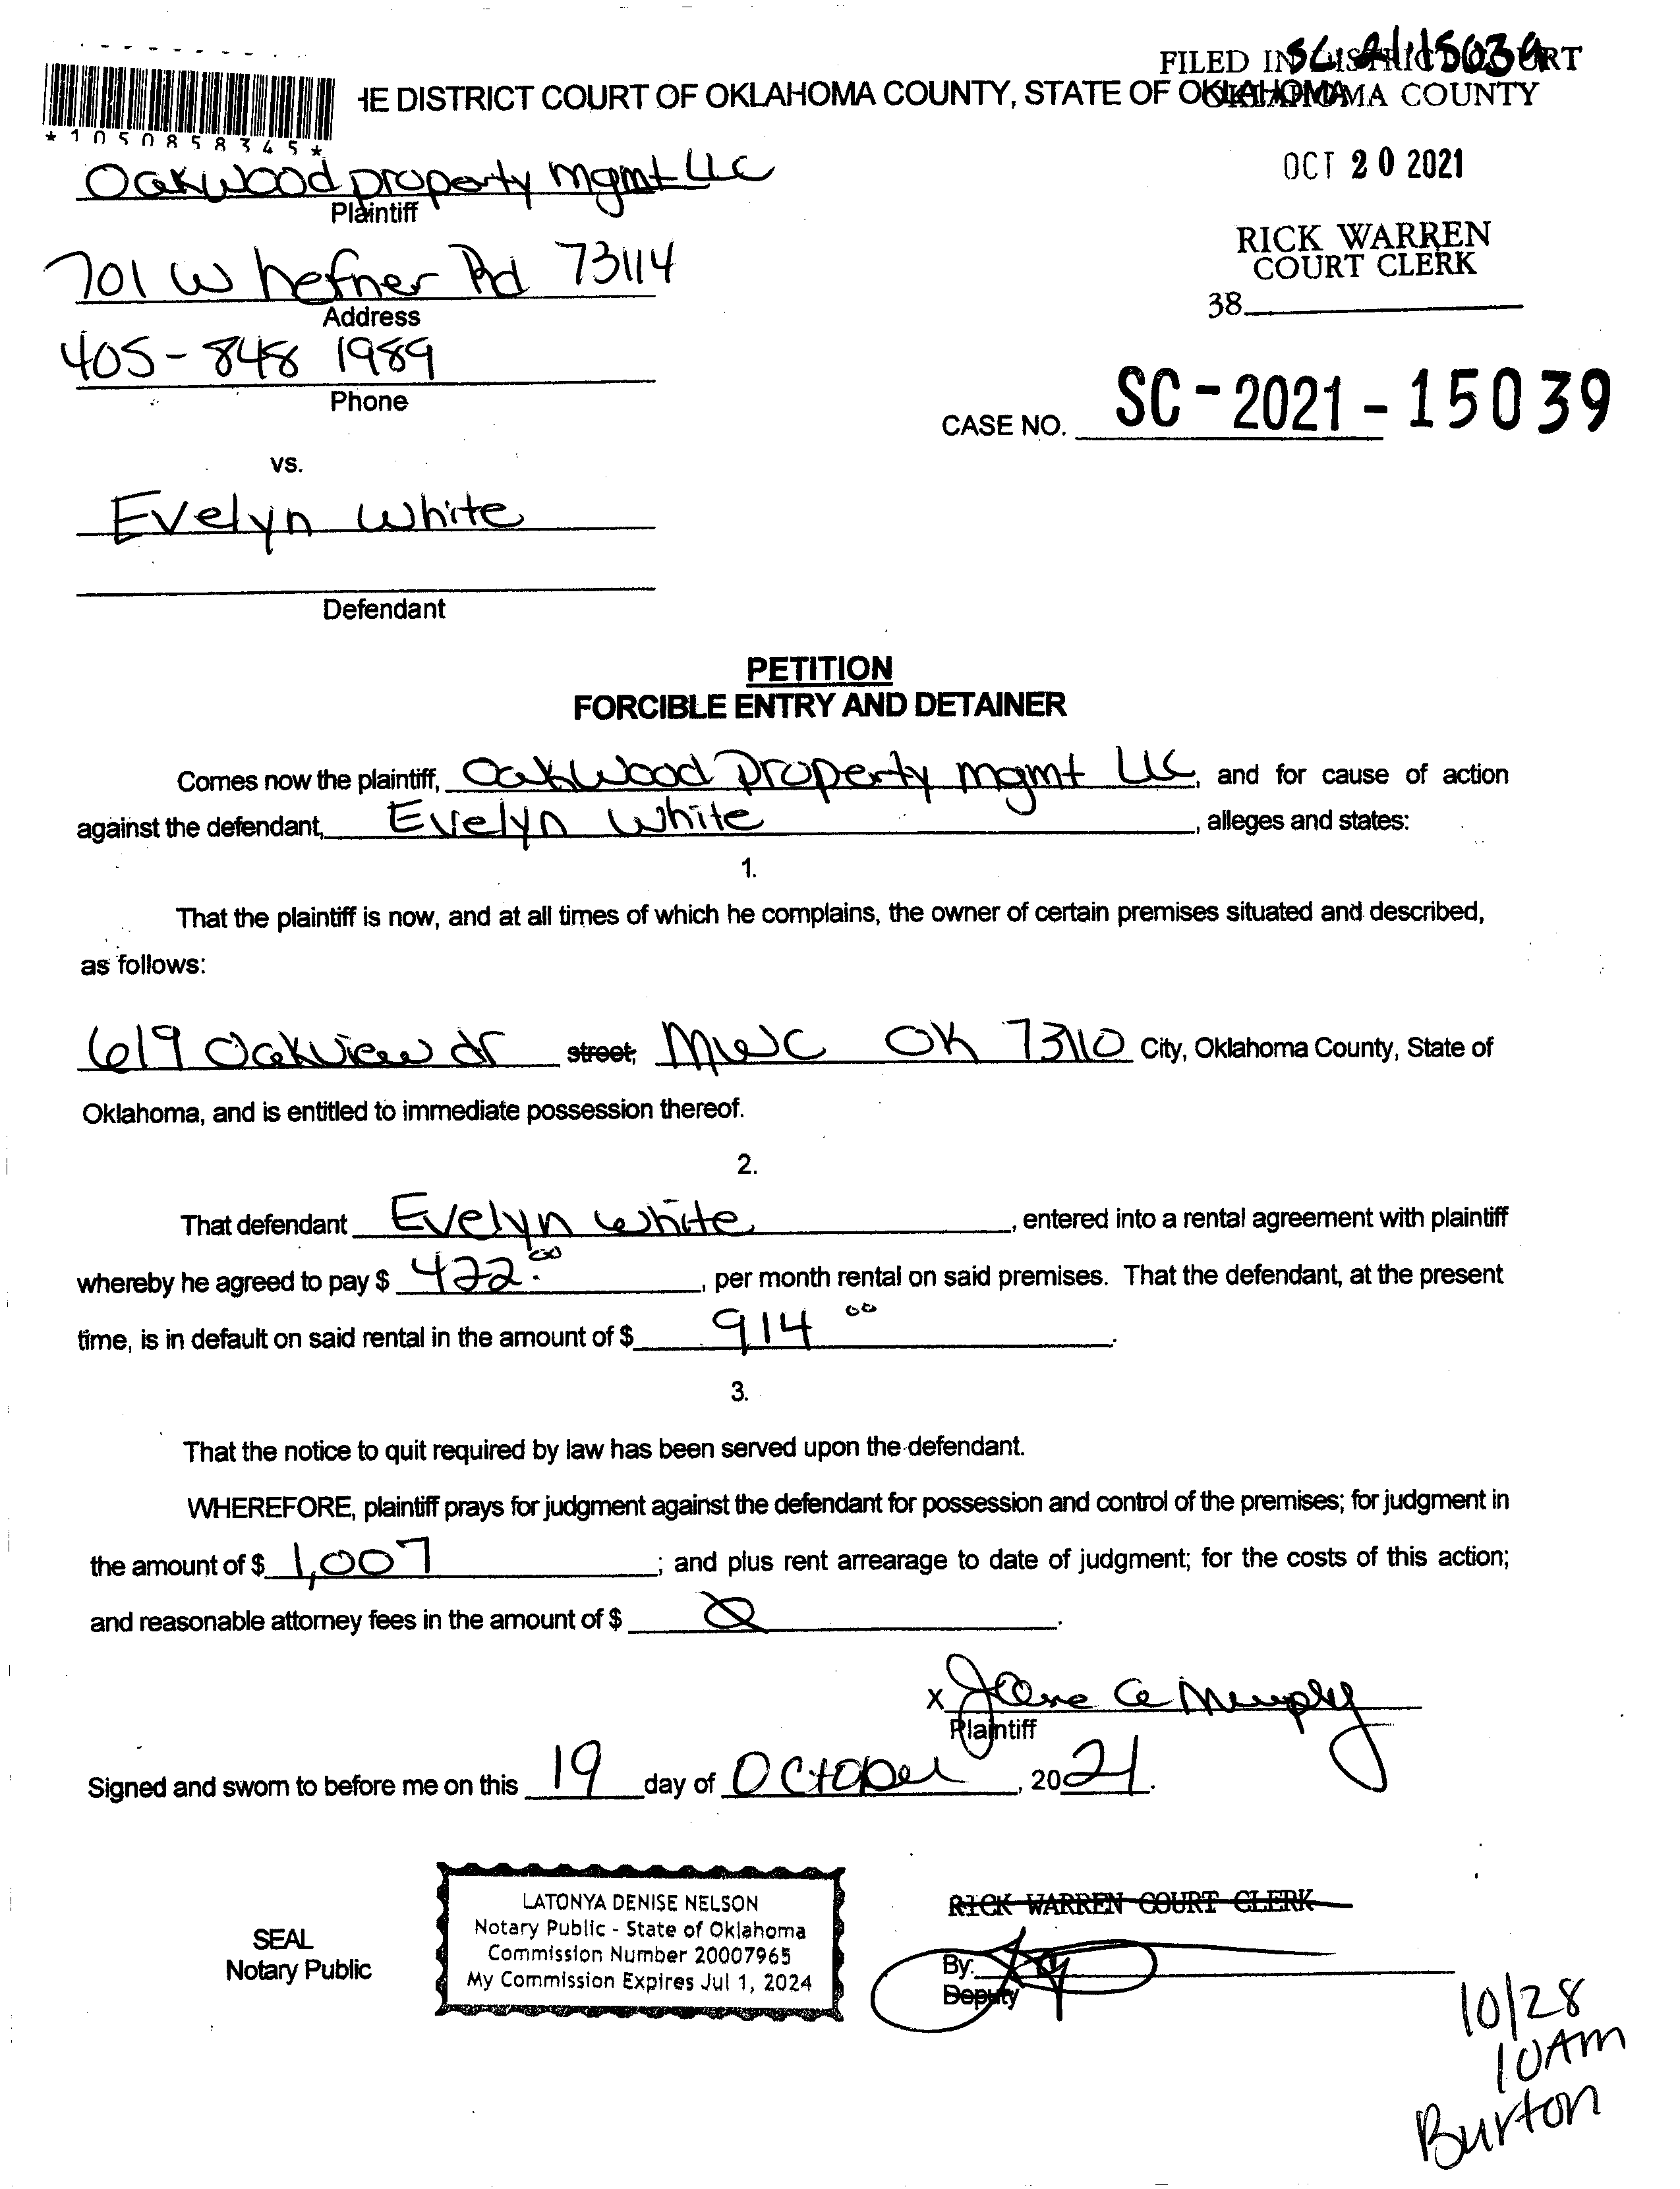 SC-21-15039
FILED IN DISTRICT COURT
OKLAHOMA COUNTY
HE DISTRICT COURT OF OKLAHOMA COUNTY, STATE OF OKLAHOMA
*1050858345*
Oakwood property mgmt LLC
Plaintiff
OCT 20 2021
701 W hefner Rd 73114
Address
RICK WARREN
COURT CLERK
38
405-848 1989
Phone
CASE NO. SC-2021-15039
vs.
Evelyn White
Defendant
PETITION
FORCIBLE ENTRY AND DETAINER
Comes now the plaintiff, Oakwood Property mgmt LLC, and for cause of action
against the defendant, Evelyn White, alleges and states:
1.
That the plaintiff is now, and at all times of which he complains, the owner of certain premises situated and described,
as follows:
619 Oakview dr street, MWC OK 73110 City, Oklahoma County, State of
Oklahoma, and is entitled to immediate possession thereof.
2.
That defendant Evelyn White, entered into a rental agreement with plaintiff
whereby he agreed to pay $ 422.00, per month rental on said premises. That the defendant, at the present
time, is in default on said rental in the amount of $ 914 00.
3.
That the notice to quit required by law has been served upon the defendant.
WHEREFORE, plaintiff prays for judgment against the defendant for possession and control of the premises; for judgment in
the amount of $ 1,007; and plus rent arrearage to date of judgment; for the costs of this action;
and reasonable attorney fees in the amount of $ 0.
x Murphy
Plaintiff
Signed and sworn to before me on this 19 day of October, 2021.
LATONYA DENISE NELSON
Notary Public - State of Oklahoma
Commission Number 20007965
My Commission Expires Jul 1, 2024
SEAL
Notary Public
RICK WARREN COURT CLERK
By:
Deputy
10/28
10AM
Burton